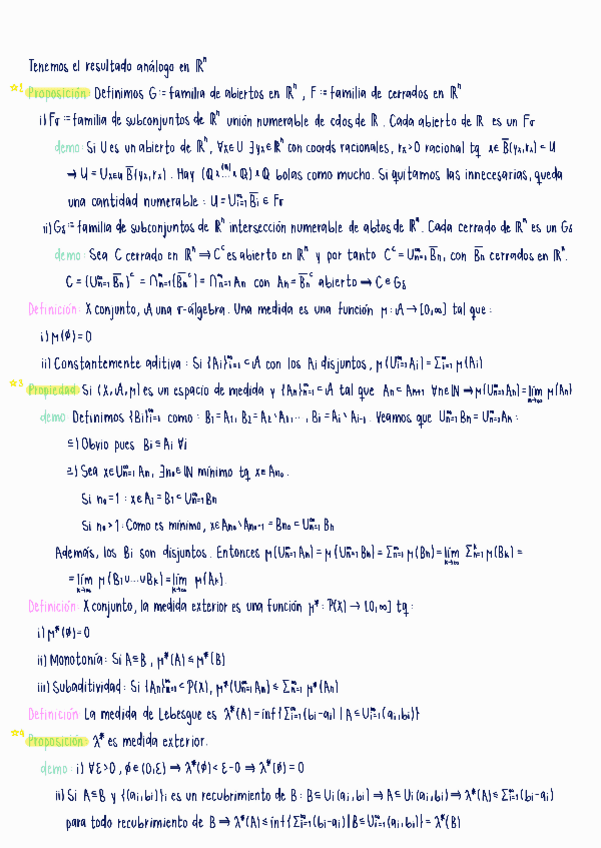 Tenemos el resultado análogo en ℝⁿ
☆2 Proposición: Definimos G := familia de abiertos en ℝⁿ, F := familia de cerrados en ℝⁿ
i) Fσ := familia de subconjuntos de ℝⁿ unión numerable de cdos de ℝ. Cada abierto de ℝ es un Fσ
demo: Si U es un abierto de ℝⁿ, ∀x∈U ∃yₓ∈ℝⁿ con coords racionales, rₓ>0 racional tq x∈B̅(yₓ,rₓ)⊂U
→ U = Uₓ∈U B̅(yₓ,rₓ). Hay (ℚ×⁽ⁿ⁾×ℚ)×ℚ bolas como mucho. Si quitamos las innecesarias, queda
una cantidad numerable: U = U∞ᵢ₌₁ B̅ᵢ ∈ Fσ
ii) Gδ := familia de subconjuntos de ℝⁿ intersección numerable de abtos de ℝⁿ. Cada cerrado de ℝⁿ es un Gδ
demo: Sea C cerrado en ℝⁿ ⇒ Cᶜ es abierto en ℝⁿ y por tanto Cᶜ = U∞ₙ₌₁ B̅ₙ, con B̅ₙ cerrados en ℝⁿ.
C = (U∞ₙ₌₁ B̅ₙ)ᶜ = ∩∞ₙ₌₁(B̅ₙᶜ) = ∩∞ₙ₌₁ Aₙ con Aₙ = B̅ₙᶜ abierto ⇒ C∈Gδ
Definición: X conjunto, 𝒜 una σ-álgebra. Una medida es una función μ: 𝒜 → [0,∞] tal que:
i) μ(∅)=0
ii) Constantemente aditiva: Si {Aᵢ}∞ᵢ₌₁ ⊂ 𝒜 con los Aᵢ disjuntos, μ(U∞ᵢ₌₁Aᵢ) = Σ∞ᵢ₌₁ μ(Aᵢ)
☆3 Propiedad: Si (X,𝒜,μ) es un espacio de medida y {Aₙ}∞ₙ₌₁ ⊂ 𝒜 tal que Aₙ⊂Aₙ₊₁ ∀n∈ℕ ⇒ μ(U∞ₙ₌₁Aₙ) = lím n→∞ μ(Aₙ)
demo: Definimos {Bᵢ}∞ᵢ₌₁ como: B₁=A₁, B₂=A₂\A₁,..., Bᵢ=Aᵢ\Aᵢ₋₁. Veamos que U∞ₙ₌₁ Bₙ = U∞ₙ₌₁Aₙ:
⊆) Obvio pues Bᵢ⊆Aᵢ ∀i
⊇) Sea x∈U∞ₙ₌₁ Aₙ, ∃n₀∈ℕ mínimo tq x∈Aₙ₀.
Si n₀=1: x∈A₁=B₁⊂U∞ₙ₌₁Bₙ
Si n₀>1: Como es mínimo, x∈Aₙ₀\Aₙ₀₋₁ = Bₙ₀ ⊂ U∞ₙ₌₁ Bₙ
Además, los Bᵢ son disjuntos. Entonces μ(U∞ₙ₌₁Aₙ) = μ(U∞ₙ₌₁Bₙ) = Σ∞ₙ₌₁ μ(Bₙ) = lím k→∞ Σᵏₙ₌₁ μ(Bₖ) =
= lím k→∞ μ(B₁∪...∪Bₖ) = lím k→∞ μ(Aₖ).
Definición: X conjunto, la medida exterior es una función μ*: P(X) → [0,∞] tq:
i) μ*(∅)=0
ii) Monotonía: Si A⊆B, μ*(A)≤μ*(B)
iii) Subaditividad: Si {Aₙ}∞ₙ₌₁ ⊂ P(X), μ*(U∞ₙ₌₁ Aₙ) ≤ Σ∞ₙ₌₁ μ*(Aₙ)
Definición: La medida de Lebesgue es λ*(A) = inf{Σ∞ᵢ₌₁(bᵢ-aᵢ) | A⊆U∞ᵢ₌₁(aᵢ,bᵢ)}
☆4 Proposición: λ* es medida exterior.
demo: i) ∀ε>0, ∅∈(0,ε) ⇒ λ*(∅)<ε-0 ⇒ λ*(∅)=0
ii) Si A⊆B y {(aᵢ,bᵢ)}ᵢ es un recubrimiento de B: B⊆Uᵢ(aᵢ,bᵢ) ⇒ A⊆Uᵢ(aᵢ,bᵢ) ⇒ λ*(A)≤Σ∞ᵢ₌₁(bᵢ-aᵢ)
para todo recubrimiento de B ⇒ λ*(A)≤inf{Σ∞ᵢ₌₁(bᵢ-aᵢ) | B⊆U∞ᵢ₌₁(aᵢ,bᵢ)} = λ*(B)